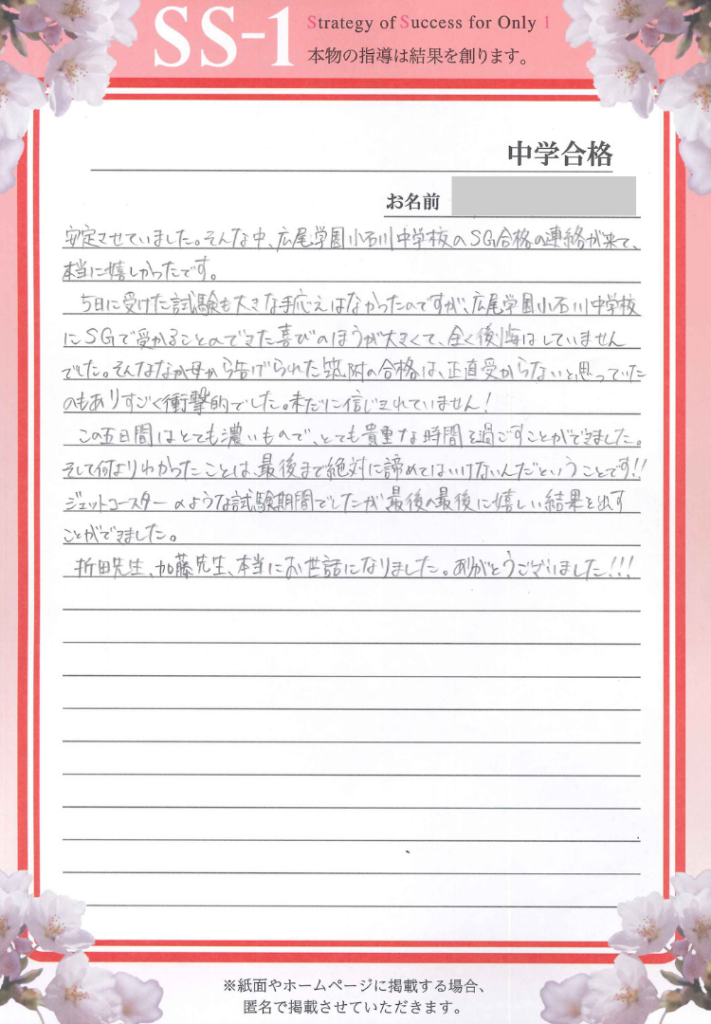 SS-1
Strategy of Success for Only 1
本物の指導は結果を創ります。
中学合格
お名前
安定させていました。そんな中、広尾学園小石川中学校のSG合格の連絡が来て、
本当に嬉しかったです。
5日に受けた試験も大きな手応えはなかったのですが、広尾学園小石川中学校
にSGで受かることのできた喜びのほうが大きくて、全く後悔はしていません
でした。そんななか母から告げられた筑附の合格は、正直受からないと思っていた
のもありすごく衝撃的でした。未だに信じきれていません!
この五日間はとても濃いもので、とても貴重な時間を過ごすことができました。
そして何よりわかったことは、最後まで絶対に諦めてはいけないんだということです!!
ジェットコースターのような試験期間でしたが最後の最後に嬉しい結果を出す
ことができました。
折田先生、加藤先生、本当にお世話になりました。ありがとうございました!!!
※紙面やホームページに掲載する場合、
匿名で掲載させていただきます。